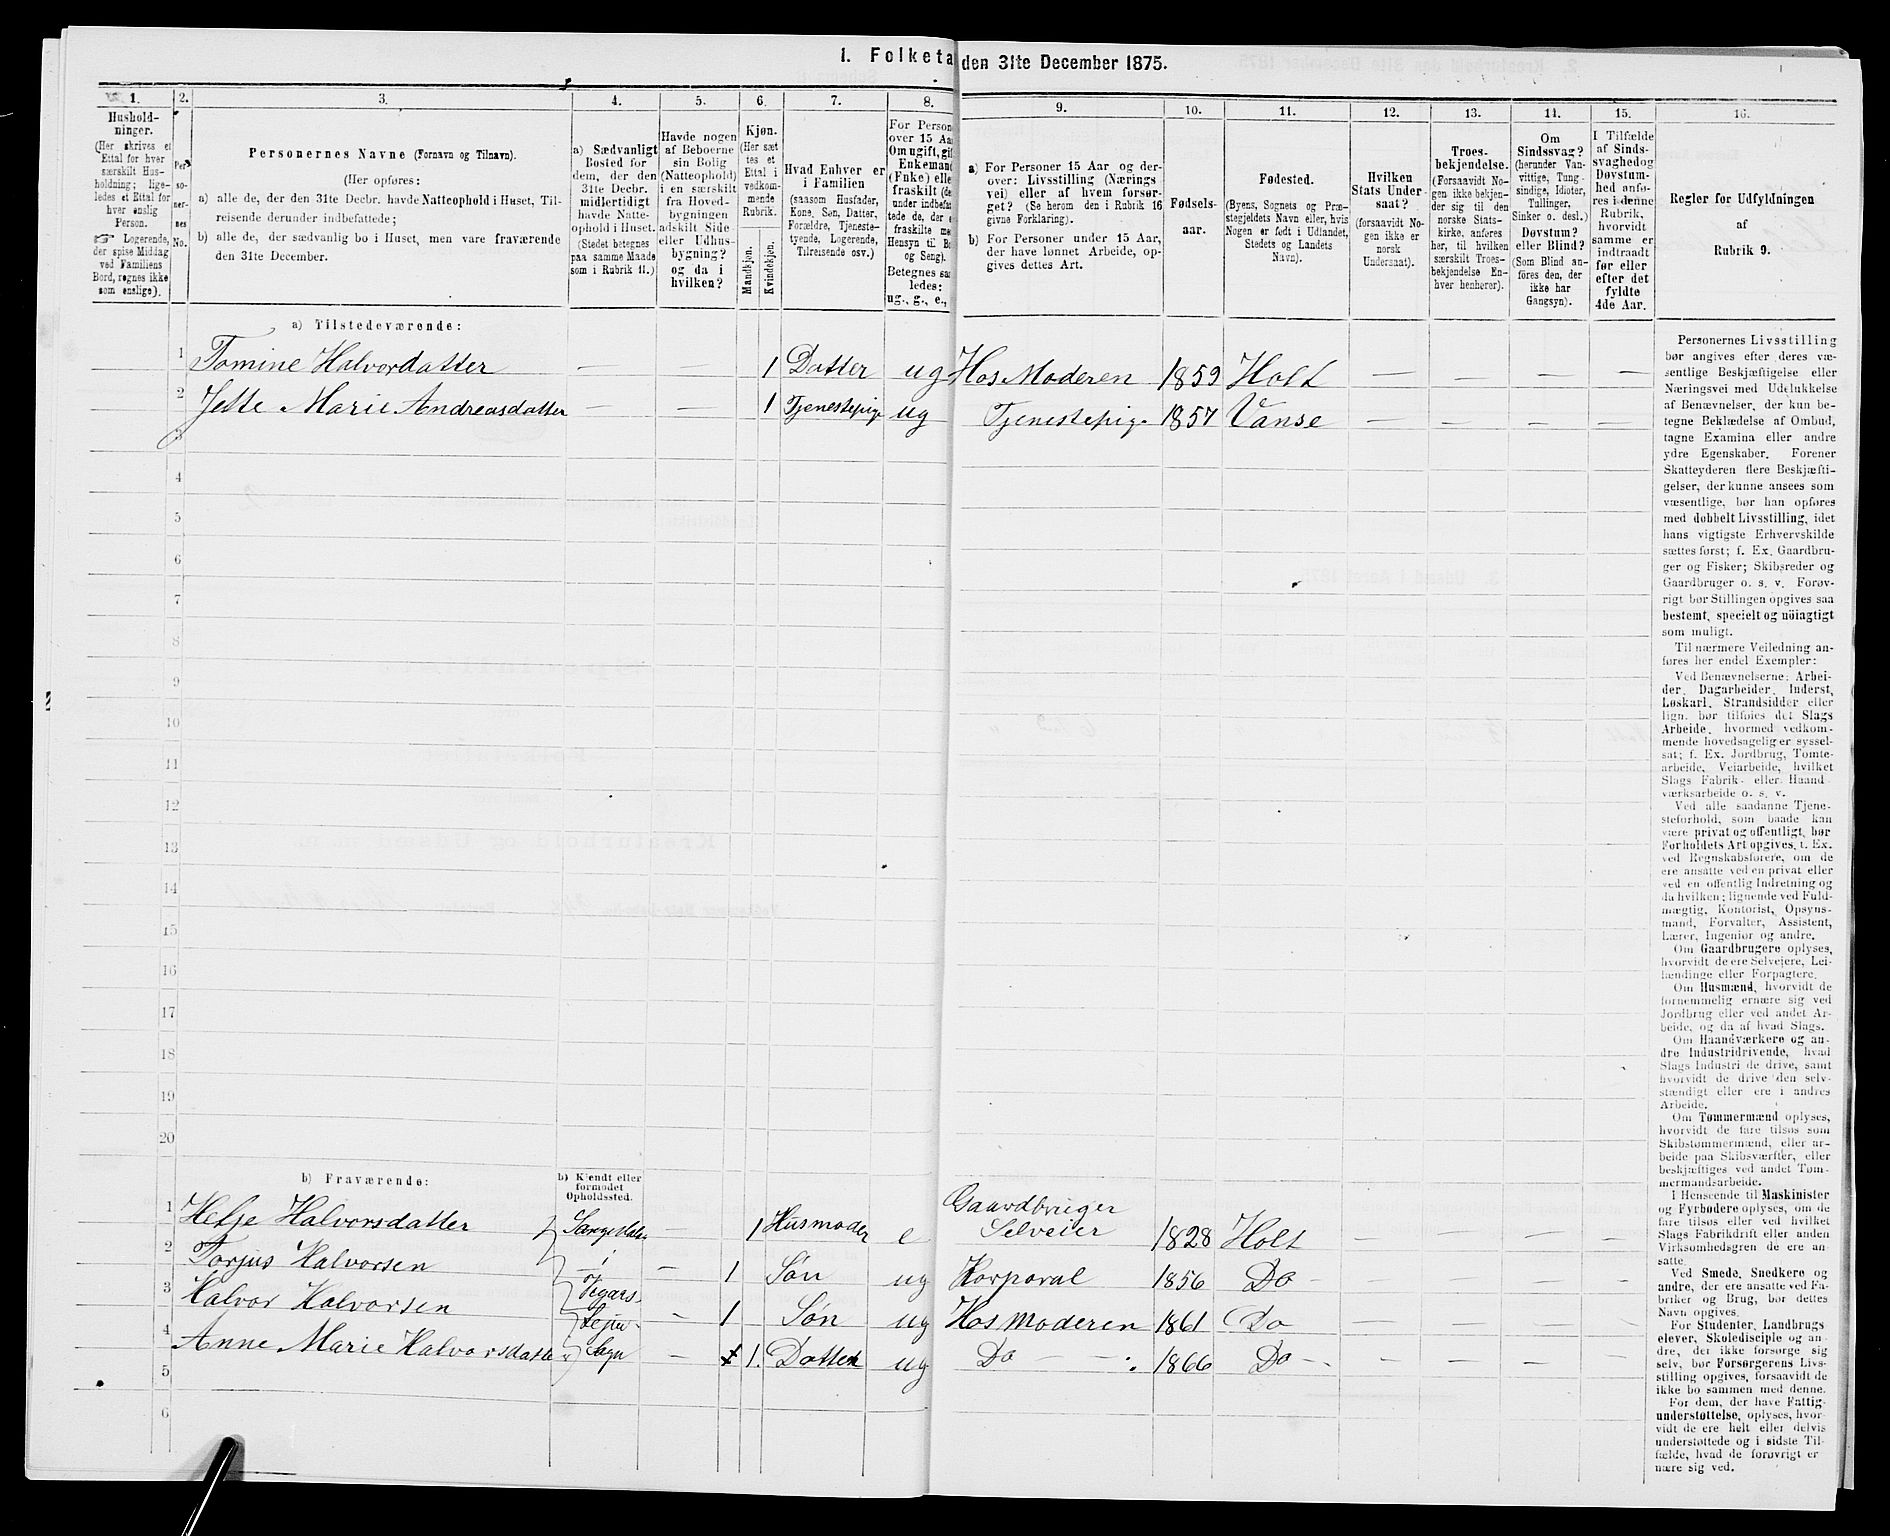 1. Folketa den 31te December 1875.
1.
2.
3.
4.
5.
6.
7.
8.
9.
10.
11.
12.
13.
14.
15.
16.
Hushold-
ninger.
(Her skrives et
Ettal for hver
særskilt Hus-
holdning; lige-
ledes et Ettal for
hver enslig
Person.
☞ Logerende,
der spise Middag
ved Familiens
Bord, regnes ikke
som enslige).
Per-
so-
ner-
nes
No.
Personernes Navne (Fornavn og Tilnavn).
(Her opføres:
a) alle de, der den 31te Decbr. havde Natteophold i Huset, Til-
reisende derunder indbefattede;
b) alle de, der sædvanlig bo i Huset, men vare fraværende
den 31te December.
a) Sædvanligt
Bosted for
dem, der den
31te Decbr.
midlertidigt
havde Natte-
ophold i Huset.
(Stedet betegnes
paa samme Maade
som i Rubrik 11.)
Havde nogen
af Beboerne
sin Bolig
(Natteophold)
i en særskilt
fra Hoved-
bygningen
adskilt Side-
eller Udhus-
bygning?
og da i
hvilken?
Kjøn.
(Her sæt
tes et
Ettal i
vedkom-
mende
Rubrik.
Mandkjøn.
Kvindekjøn.
Hvad Enhver er
i Familien
(saasom Husfader,
Kone, Søn, Datter,
Forældre, Tjeneste-
tyende, Logerende,
Tilreisende osv.)
For Person
over 15 Aa
Om ugift, gif
Enkemand
(Enke) elle
fraskilt (de
under indbefat-
tede de, der e
fraskilte me
Hensyn til Bo
og Seng).
Betegnes saa
ledes:
ug., g., e.,
a) For Personer 15 Aar og der-
over: Livsstilling (Nærings
vei) eller af hvem forsør-
get? (Se herom den i Rubrik 16
givne Forklaring).
b) For Personer under 15 Aar,
der have lønnet Arbeide, op-
gives dettes Art.
Fødsels-
aar.
Fødested.
(Byens, Sognets og Præ-
stegjeldets Navn eller, hvis
Nogen er født i Udlandet,
Stedets og Landets
Navn).
Hvilken
Stats Under-
saat?
(forsaavidt No-
gen ikke er
norsk
Undersaat).
Troes-
bekjendelse.
(Forsaavidt No-
gen ikke bekjen-
der sig til den
norske Stats-
kirke, anføres
her, til hvilken
særskilt Troes-
bekjendelse En-
hver henhører).
Om
Sindssvag?
(herunder Van-
vittige, Tung-
sindige, Idioter,
Tullinger,
Sinker o. desl.)
Døvstum?
eller Blind?
(Som Blind an-
føres den, der
ikke har
Gangsyn).
I Tilfælde
af Sinds-
svaghed og
Døvstum-
hed anfø-
res i denne
Rubrik,
hvorvidt
samme er
indtraadt
før eller
efter det
fyldte
4de Aar.
Regler for Udfyldningen
af
Rubrik 9.
a) Tilstedeværende:
1 Tomine Halvordatter — — 1 Datter ug Hos Moderen 1859 Holt — — — —
2 Jette Marie Andreasdatter — — 1 Tjenestepige ug Tjenestepige 1857 Vanse — — — —
3
4
5
6
7
8
9
10
11
12
13
14
15
16
17
18
19
20
b) Fraværende:
b) Kjendt eller
formodet
Opholdssted.
1 Helje Halvorsdatter — 1 Husmoder e Gaardbruger
Selveier 1828 Holt — — — —
2 Torjus Halvorsen — 1 Søn ug Korporal 1856 Do — — — —
3 Halvor Halvorsen — 1 Søn ug Hos Moderen 1861 Do — — — —
4 Anne Marie Halvorsdatter Sogn — 1. Datter ug Do — 1866 Do — — — — —
5
6
Personernes Livsstilling
bør angives efter deres væ-
sentlige Beskjæftigelse eller
Næringsvei med Udelukkelse
af Benævnelser, der kun be-
tegne Beklædelse af Ombud,
tagne Examina eller andre
ydre Egenskaber. Forener
Skatteyderen flere Beskjæfti-
gelser, der kunne ansees som
væsentlige, bør han opføres
med dobbelt Livsstilling, idet
hans vigtigste Erhvervskilde
sættes først; f. Ex. Gaardbru-
ger og Fisker; Skibsreder og
Gaardbruger o. s. v. Forøv-
rigt bør Stillingen opgives saa
bestemt, specielt og nöiagtigt
som muligt.
Til nærmere Veiledning an-
føres her endel Exempler:
Ved Benævnelserne: Arbei-
der, Dagarbeider, Inderst,
Løskarl, Strandsidder eller
lign. bør tilføies det Slags
Arbeide, hvormed vedkom-
mende hovedsagelig er syssel-
sat; f. Ex. Jordbrug, Tomte-
arbeide, Veiarbeide, hvilket
Slags Fabrik- eller Haand-
værksarbeide o. s. v.
Ved alle saadanne Tjene-
steforhold, som baade kan
være privat og offentligt, bør
Forholdets Art opgives, t. Ex.
ved Regnskabsførere, om de
ere ansatte ved en privat eller
ved en offentlig Indretning og
da hvilken; lignende ved Fuld-
mægtig, Kontorist, Opsyns-
mand, Forvalter, Assistent,
Lærer, Ingeniør og andre.
Om Gaardbrugere oplyses,
hvorvidt de ere Selveiere, Lei-
lændinge eller Forpagtere.
Om Husmænd, hvorvidt de
fornemmelig ernære sig ved
Jordbrug eller ved andet Ar-
beide, og da af hvad Slags.
Om Haandværkere og an-
dre Industridrivende, hvad
Slags Industri de drive, samt
hvorvidt de drive den selv-
stændigt eller ere i andres
Arbeide.
Om Tømmermænd oplyses,
hvorvidt de fare tilsøs som
Skibstømmermænd, eller ar-
beide paa Skibsværfter, eller
beskjæftiges ved andet Tøm-
mermandsarbeide.
I Henseende til Maskinister
og Fyrbødere oplyses, om de
fare tilsøs eller ved hvilket
Slags Fabrikdrift eller anden
Virksomhedsgren de ere an-
satte.
Ved Smede, Snedkere og
andre, der ere ansatte ved Fa-
briker og Brug, bør dettes
Navn opgives.
For Studenter, Landbrugs-
elever, Skoledisciple og an-
dre, der ikke forsørge sig
selv, bør Forsørgerens Livs-
stilling opgives, forsaavidt de
ikke bo sammen med denne.
For dem, der have Fattig-
understøttelse, oplyses, hvor-
vidt de ere helt eller delvis
understøttede og i sidste Til-
fælde, hvad de forøvrigt er-
nære sig ved.